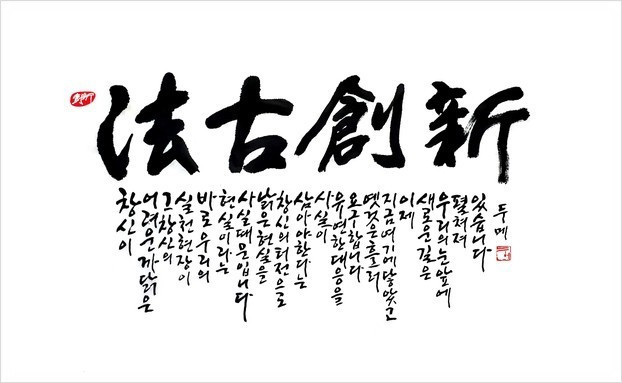 法古創新
창신이
어려운까닭은
그창신의
실천현장이
바로우리의
현실이라는
사실때문입니다
낡은현실을
창신의터전으로
삼아야한다는
사실이
유연한대응을
요구합니다
옛것은흘러
지금여기에닿았고
이제
새로운길은
우리의눈앞에
펼쳐져
있습니다
두메